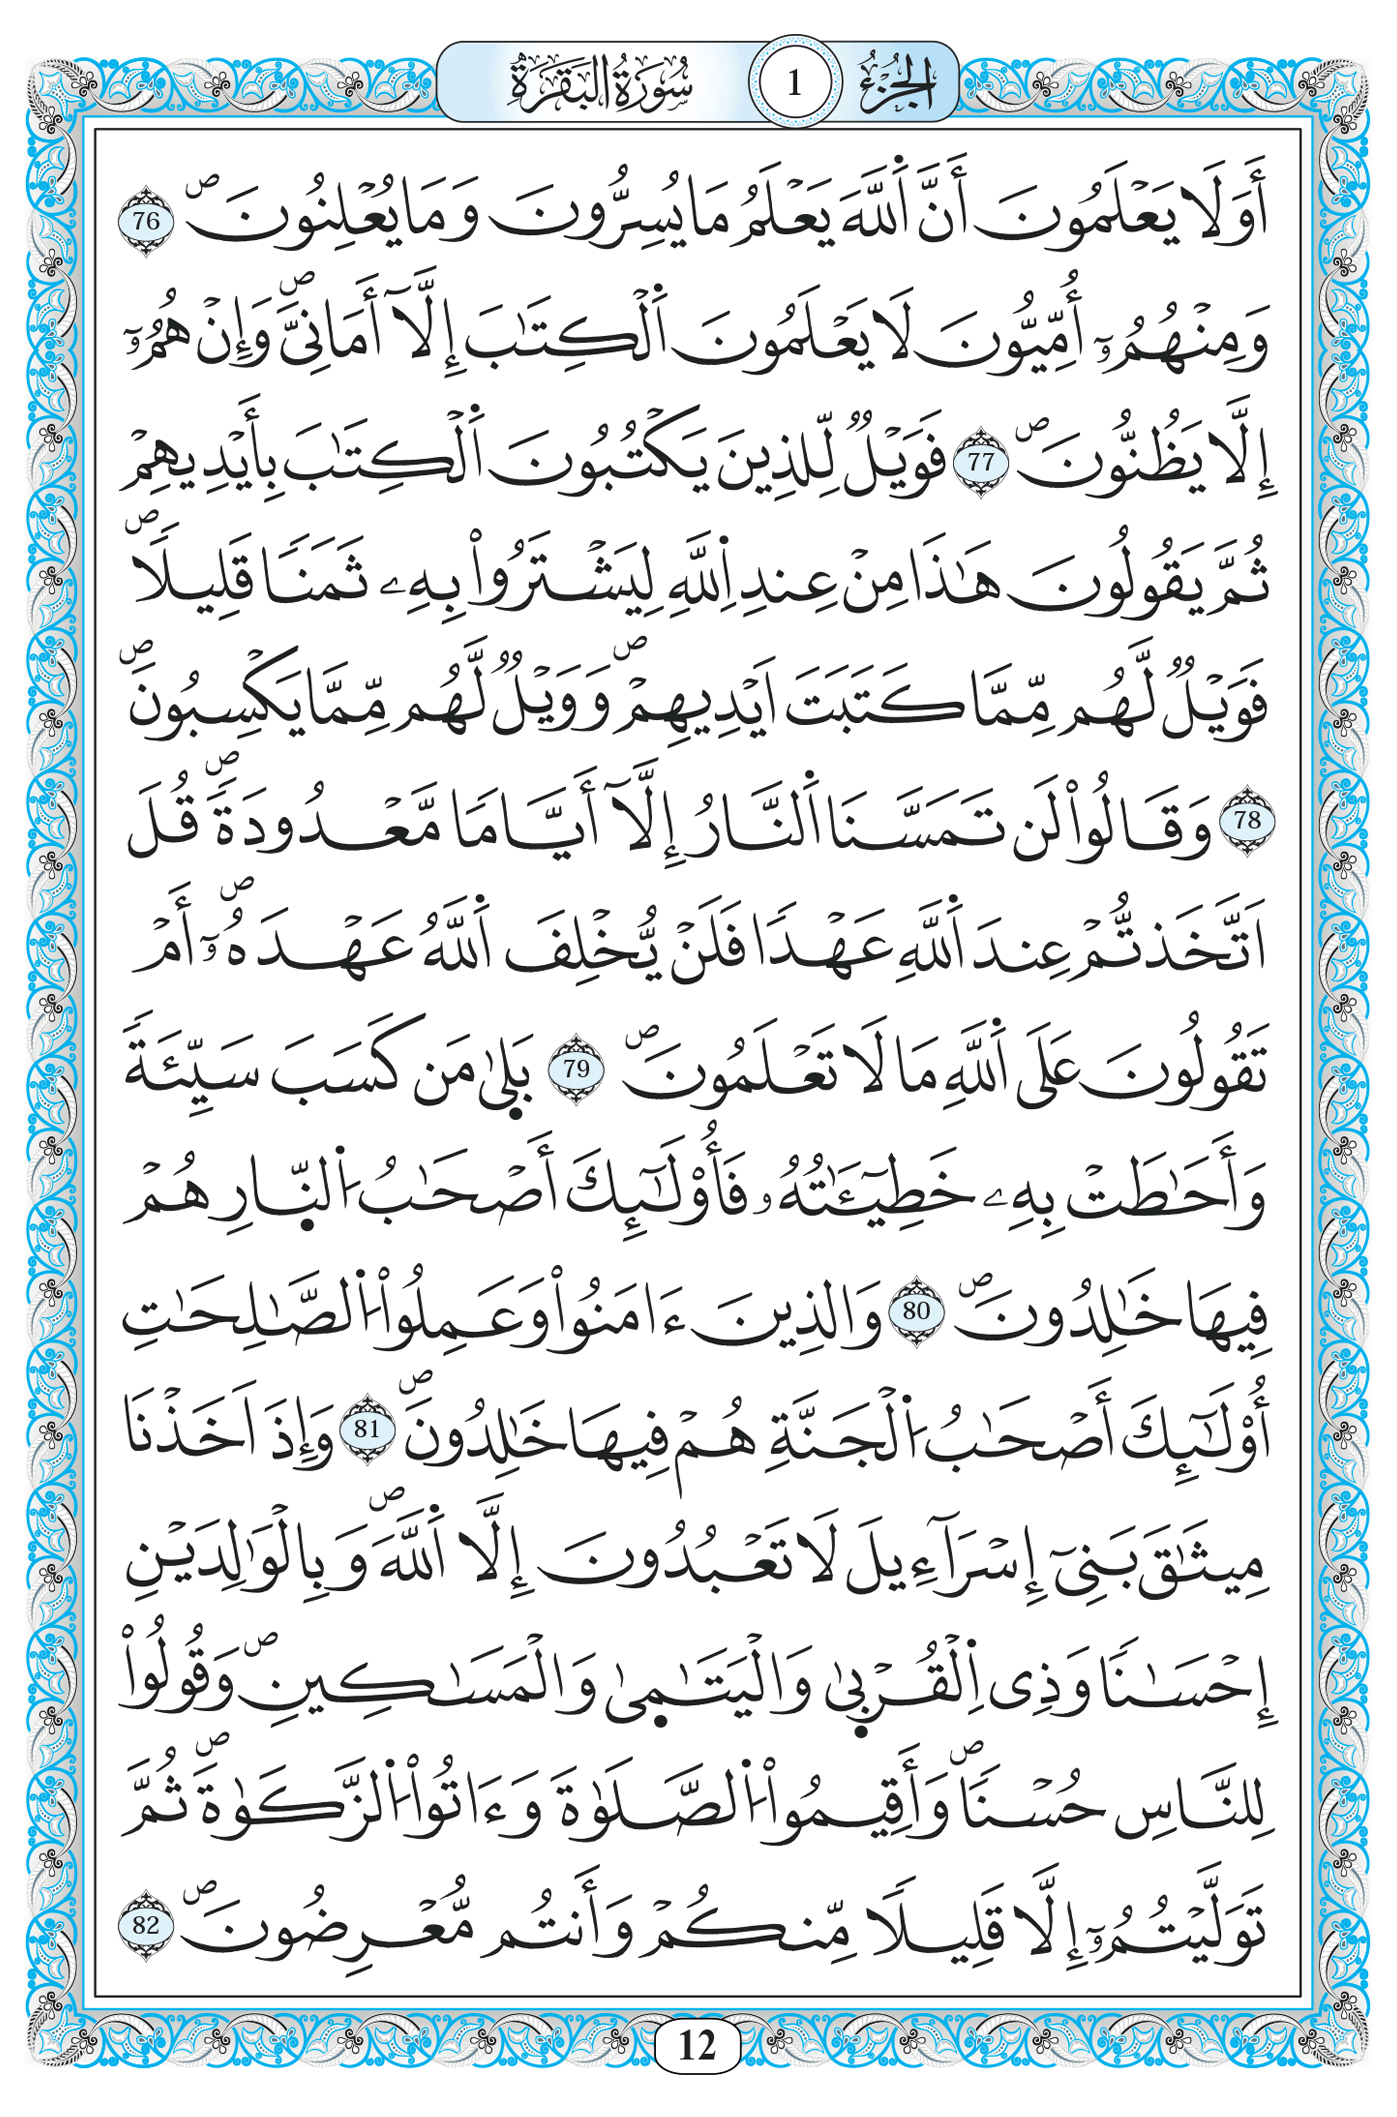 الجزء 1 سورة البقرة
أَوَلَا يَعْلَمُونَ أَنَّ اَ۬للَّهَ يَعْلَمُ مَا يُسِرُّونَ وَمَا يُعْلِنُونَۖ 76
وَمِنْهُمُۥٓ أُمِّيُّونَ لَا يَعْلَمُونَ اَ۬لْكِتَٰبَ إِلَّآ أَمَانِيَّۖ وَإِنْ هُمُۥٓ
إِلَّا يَظُنُّونَۖ 77 فَوَيْلٞ لِّلذِينَ يَكْتُبُونَ اَ۬لْكِتَٰبَ بِأَيْدِيهِمْ
ثُمَّ يَقُولُونَ هَٰذَا مِنْ عِندِ اِ۬للَّهِ لِيَشْتَرُواْ بِهِۦ ثَمَناٗ قَلِيلاٗۖ
فَوَيْلٞ لَّهُم مِّمَّا كَتَبَتَ اَيْدِيهِمْۖ وَوَيْلٞ لَّهُم مِّمَّا يَكْسِبُونَۖ
78 وَقَالُواْ لَن تَمَسَّنَا اَ۬لنَّارُ إِلَّآ أَيَّاماٗ مَّعْدُودَةٗۖ قُلَ
اَتَّخَذتُّمْ عِندَ اَ۬للَّهِ عَهْداٗ فَلَنْ يُّخْلِفَ اَ۬للَّهُ عَهْدَهُۥٓۖ أَمْ
تَقُولُونَ عَلَى اَ۬للَّهِ مَا لَا تَعْلَمُونَۖ 79 بَلَىٰ مَن كَسَبَ سَيِّئَةٗ
وَأَحَٰطَتْ بِهِۦ خَطِيٓـَٰٔتُهُۥ فَأُوْلَٰٓئِكَ أَصْحَٰبُ اُ۬لنّ۪ارِ هُمْ
فِيهَا خَٰلِدُونَۖ 80 وَالذِينَ ءَامَنُواْ وَعَمِلُواْ اُ۬لصَّٰلِحَٰتِ
أُوْلَٰٓئِكَ أَصْحَٰبُ اُ۬لْجَنَّةِ هُمْ فِيهَا خَٰلِدُونَۖ 81 وَإِذَ اَخَذْنَا
مِيثَٰقَ بَنِيٓ إِسْرَآءِيلَ لَا تَعْبُدُونَ إِلَّا اَ۬للَّهَۖ وَبِالْوَٰلِدَيْنِ
إِحْسَٰناٗ وَذِي اِ۬لْقُرْب۪ىٰ وَالْيَتَٰم۪ىٰ وَالْمَسَٰكِينِۖ وَقُولُواْ
لِلنَّاسِ حُسْناٗۖ وَأَقِيمُواْ اُ۬لصَّلَوٰةَ وَءَاتُواْ اُ۬لزَّكَوٰةَۖ ثُمَّ
تَوَلَّيْتُمُۥٓ إِلَّا قَلِيلاٗ مِّنكُمْ وَأَنتُم مُّعْرِضُونَۖ 82
12